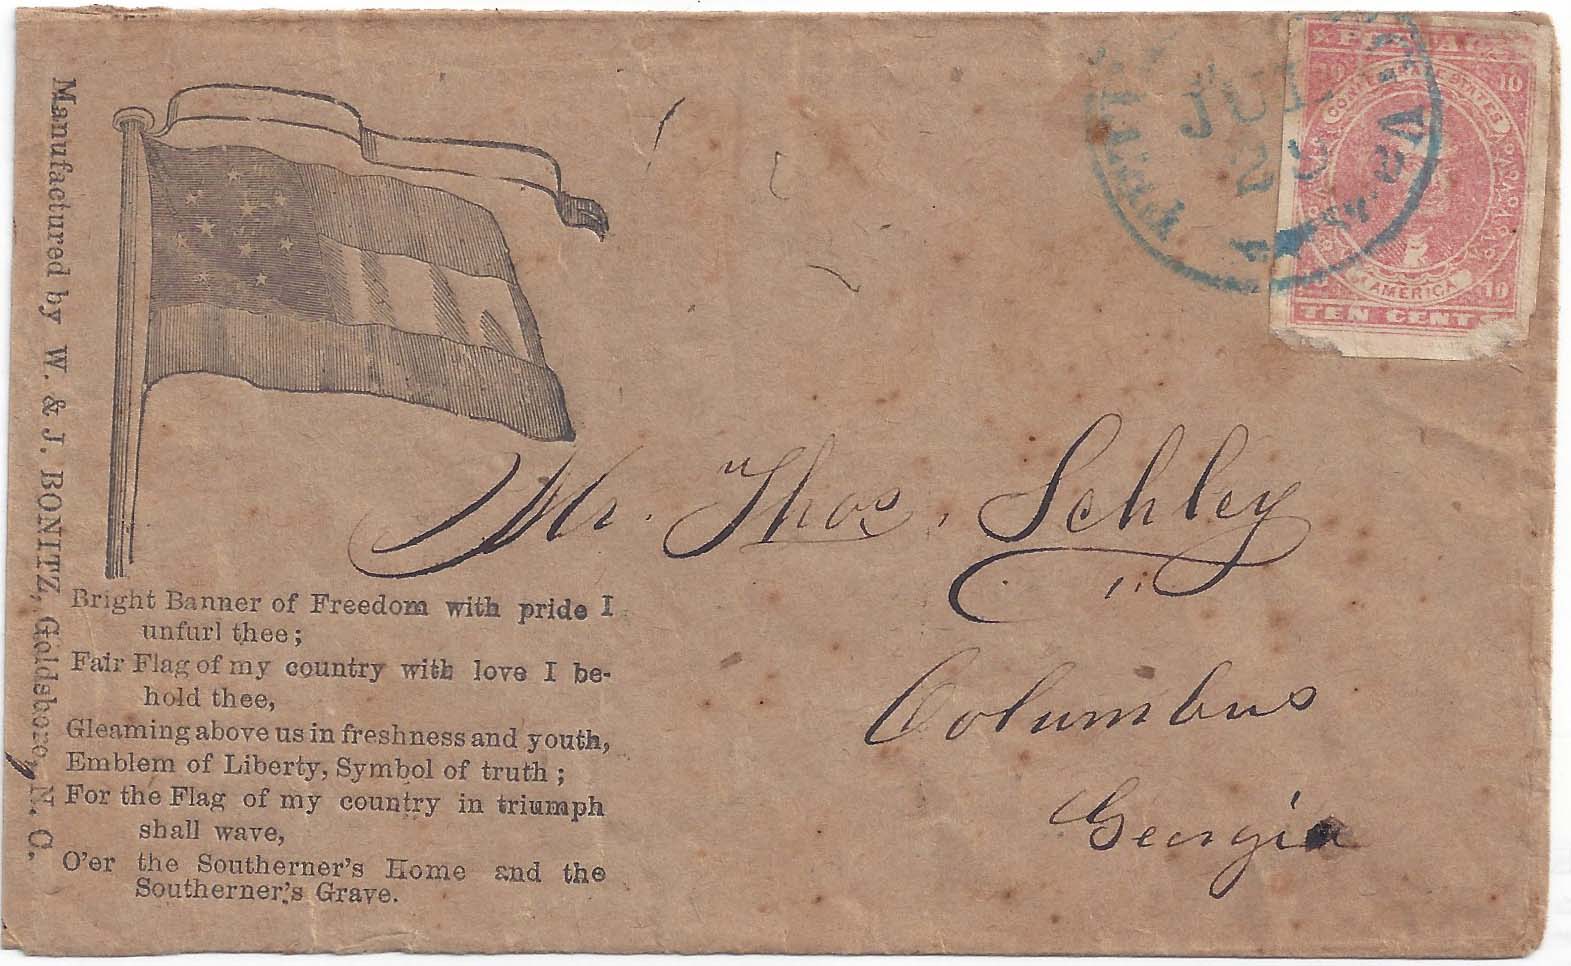 Manufactured by W. & J. BONITZ, Goldsboro, N. C.
Bright Banner of Freedom with pride I
unfurl thee;
Fair Flag of my country with love I be-
hold thee,
Gleaming above us in freshness and youth,
Emblem of Liberty, Symbol of truth;
For the Flag of my country in triumph
shall wave,
O'er the Southerner's Home and the
Southerner's Grave.
JUL
VA
POSTAGE
10 10
CONFEDERATE STATES
OF AMERICA
10
TEN CENTS
Mr. Thos. Schley
Columbus
Georgia